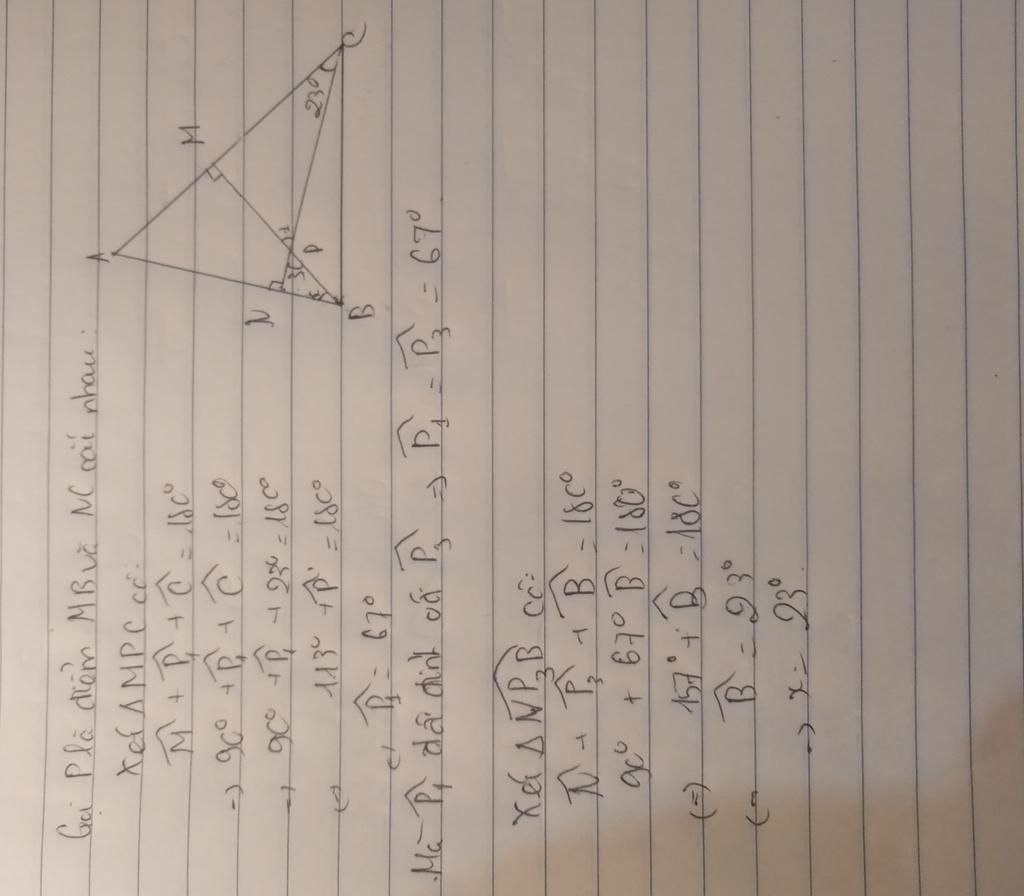 Gọi P là điểm MB và NC cắt nhau:
Xét Δ MPC có:
M̂ + P̂₁ + Ĉ = 180°
=) 90° + P̂₁ + Ĉ = 180°
=) 90° + P̂₁ + 23° = 180°
(=) 113° + P̂ = 180°
(=) P̂₁ = 67°
Mà P̂₁ đối đỉnh với P̂₃ =) P̂₁ = P̂₃ = 67°
Xét Δ NP₃B có:
N̂ + P̂₃ + B̂ = 180°
90° + 67° B̂ = 180°
(=) 157° + B̂ = 180°
(=) B̂ = 23°
=) x = 23°
A
M
N
23°
C
1
3
P
x
B